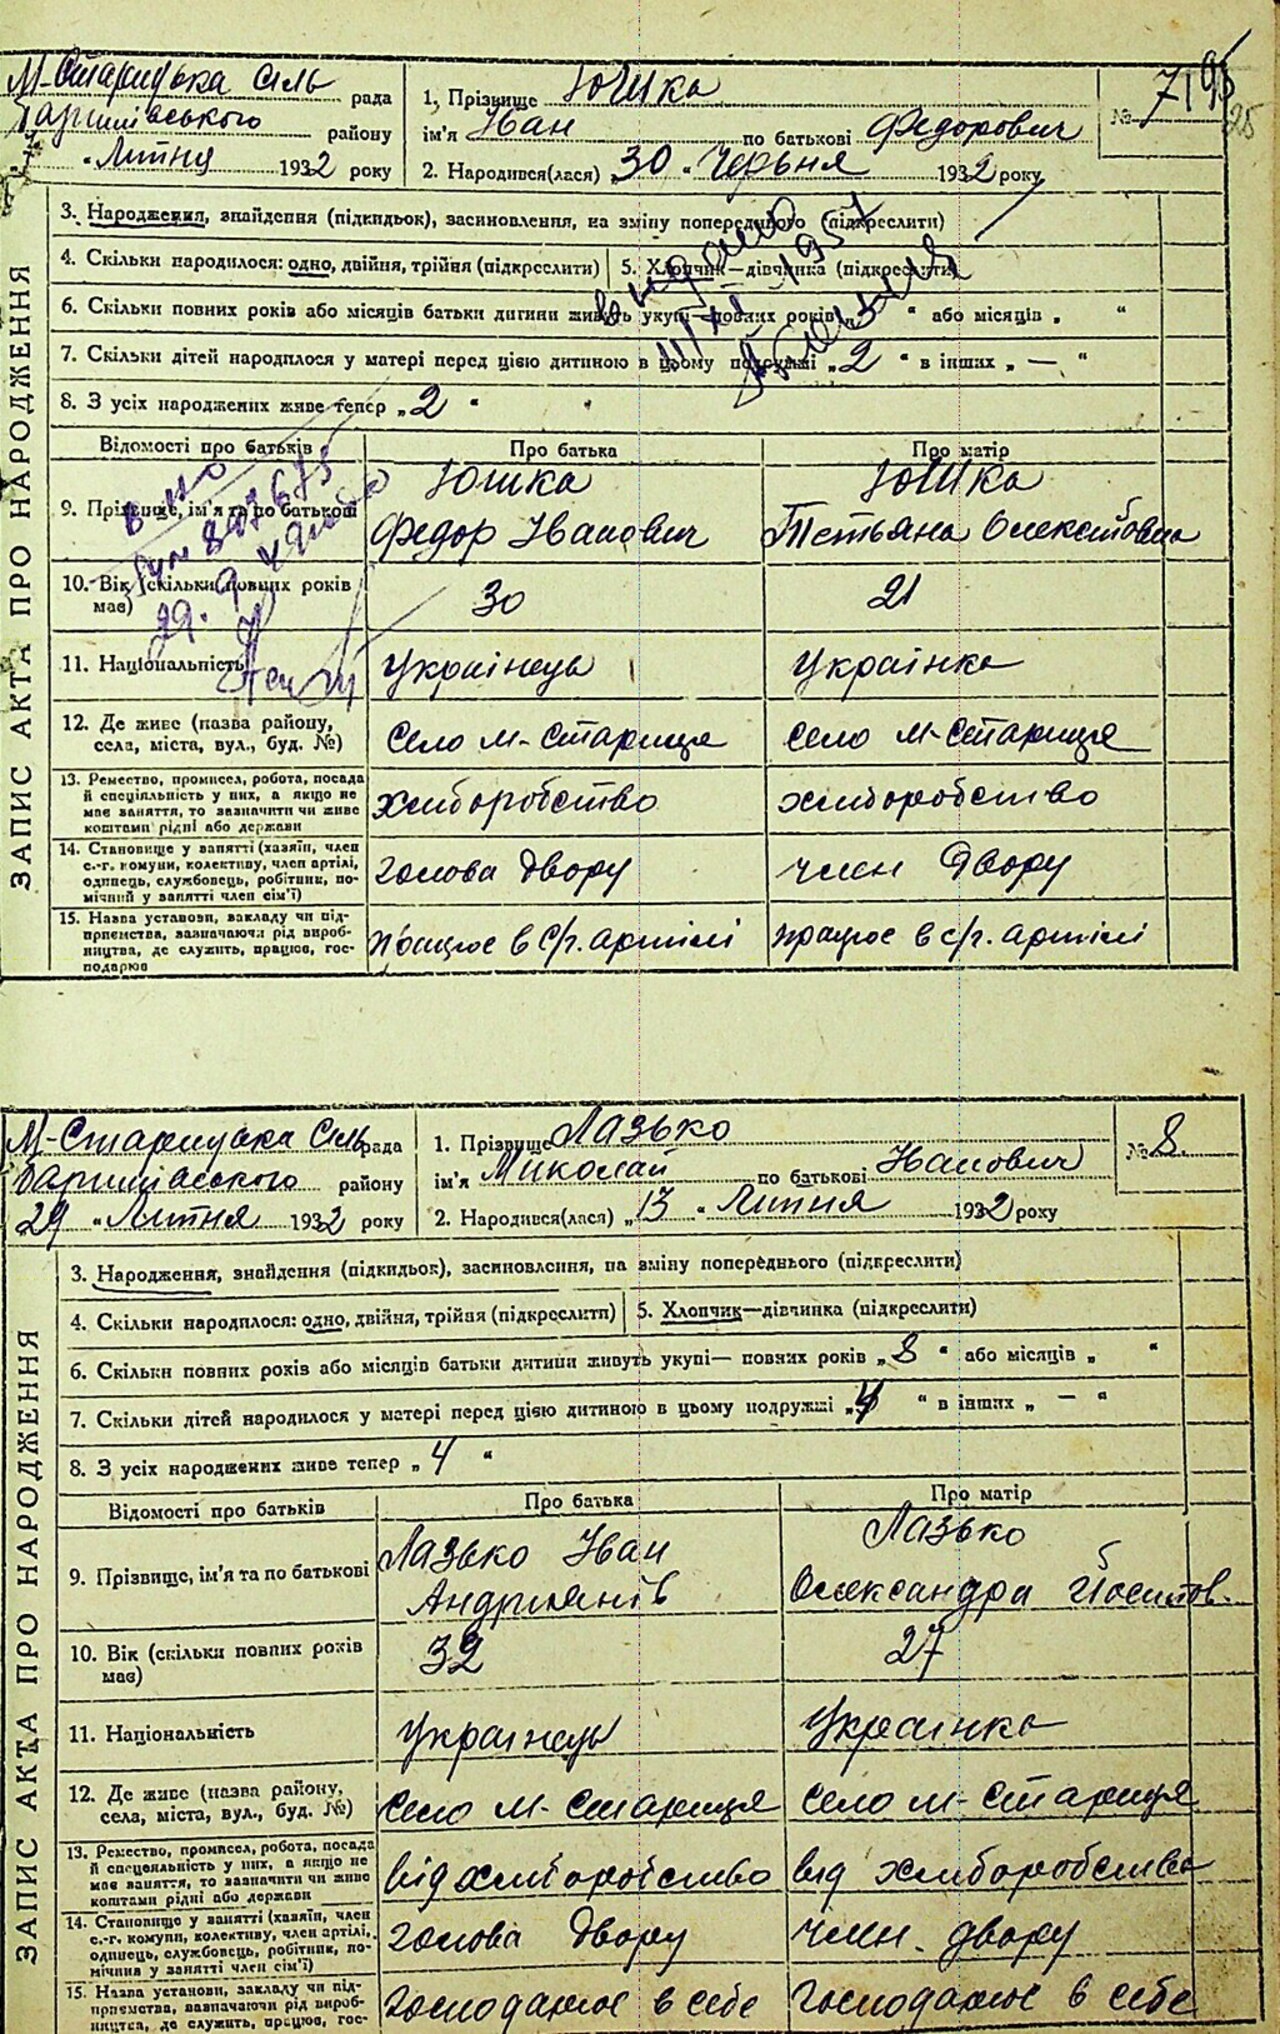 М-Старицька Сіль рада
Баришівського району
7 " Липня 1932 року
1. Прізвище Юшка
ім'я Іван по батькові Федорович
2. Народився(лася) „30 " Червня 1932 року
№ 7
ЗАПИС АКТА ПРО НАРОДЖЕННЯ
3. Народження, знайдення (підкидьок), засиновлення, на зміну попереднього (підкреслити)
4. Скільки народилося: одно, двійня, трійня (підкреслити) 5. Хлопчик—дівчинка (підкреслити)
6. Скільки повних років або місяців батьки дитини живуть укупі—повних років „ " або місяців „ "
7. Скільки дітей народилося у матері перед цією дитиною в цьому подружжі „2 " в інших „ — "
8. З усіх народжених живе тепер „2 "
Відомості про батьків Про батька Про матір
9. Прізвище, ім'я та по батькові
Юшка Федор Іванович
Юшка Тетьяна Олексеївна
10. Вік (скільки повних років має) 30 21
11. Національність Українець Українка
12. Де живе (назва району, села, міста, вул., буд. №) Село М-Стариця Село М-Стариця
13. Ремество, промисел, робота, посада й спеціяльність у них, а якщо не має заняття, то зазначити чи живе коштами рідні або держави
хліборобство хліборобство
14. Становище у занятті (хазяїн, член с.-г. комуни, колективу, член артілі, одинець, службовець, робітник, помічний у занятті член сім'ї)
голова двору член двору
15. Назва установи, закладу чи підприємства, вазначаючи рід виробництва, де служить, працює, господарює
працює в с/г. артілі працює в с/г. артілі
М-Старицька Сіль рада
Баришівського району
29 " Липня 1932 року
1. Прізвище Лазько
ім'я Миколай по батькові Іванович
2. Народився(лася) „13 " Липня 1932 року
№ 8.
ЗАПИС АКТА ПРО НАРОДЖЕННЯ
3. Народження, знайдення (підкидьок), засиновлення, на зміну попереднього (підкреслити)
4. Скільки народилося: одно, двійня, трійня (підкреслити) 5. Хлопчик—дівчинка (підкреслити)
6. Скільки повних років або місяців батьки дитини живуть укупі— повних років „8 " або місяців „ "
7. Скільки дітей народилося у матері перед цією дитиною в цьому подружжі „4 " в інших „ — "
8. З усіх народжених живе тепер „4 "
Відомості про батьків Про батька Про матір
9. Прізвище, ім'я та по батькові
Лазько Іван Андриянів
Лазько Олександра Йосипов.
10. Вік (скільки повних років має) 32 27
11. Національність Українець Українка
12. Де живе (назва району, села, міста, вул., буд. №) Село М-Стариця Село М-Стариця
13. Ремество, промисел, робота, посада й спеціяльність у них, а якщо не має заняття, то зазначити чи живе коштами рідні або держави
від хліборобство від хліборобства
14. Становище у занятті (хазяїн, член с.-г. комуни, колективу, член артілі, одинець, службовець, робітник, помічний у занятті член сім'ї)
голова двору член двору
15. Назва установи, закладу чи підприємства, вазначаючи рід виробництва, де служить, працює, гос-
господарює в себе господарює в себе